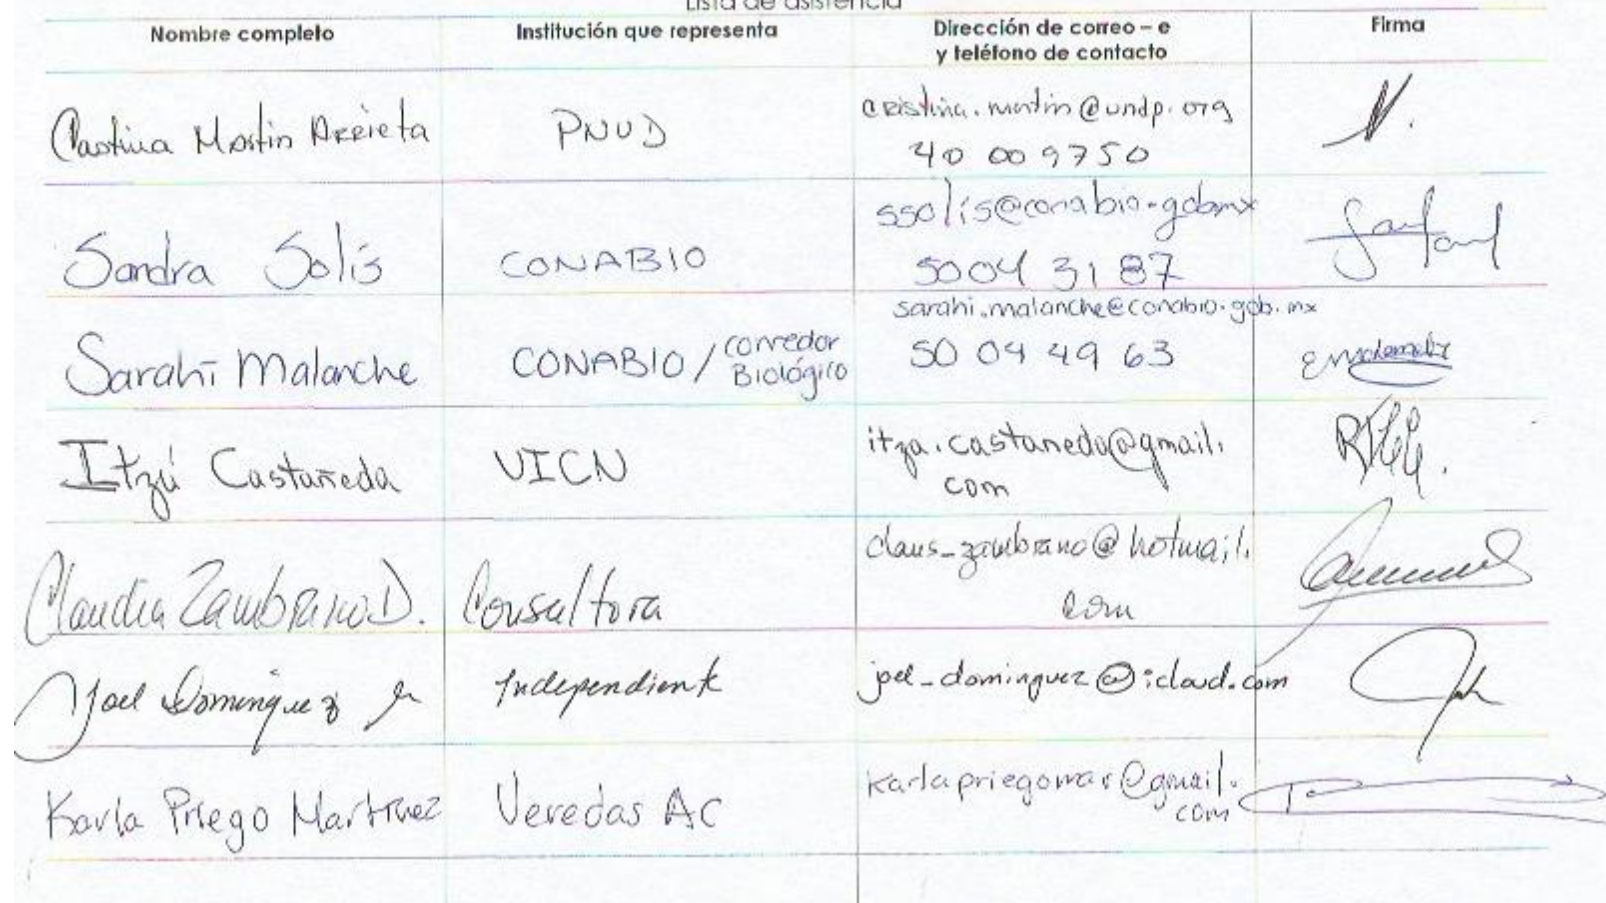 Lista de asistencia
Nombre completo
Institución que representa
Dirección de correo – e
y teléfono de contacto
Firma
Cristina Martin Arrieta
PNUD
cristina.martin@undp.org
40 00 9750
Sandra Solís
CONABIO
ssolis@conabio.gob.mx
5004 3187
Sarahi Malanche
CONABIO / corredor
Biológico
sarahi.malanche@conabio.gob.mx
50 04 49 63
Itzá Castañeda
UICN
itza.castaneda@gmail.
com
Claudia Zambrano D.
Consultora
claus_zambrano@hotmail.
com
Joel Dominguez
Independiente
joel_dominguez@icloud.com
Karla Priego Martínez
Veredas AC
karlapriegomar@gmail.
com